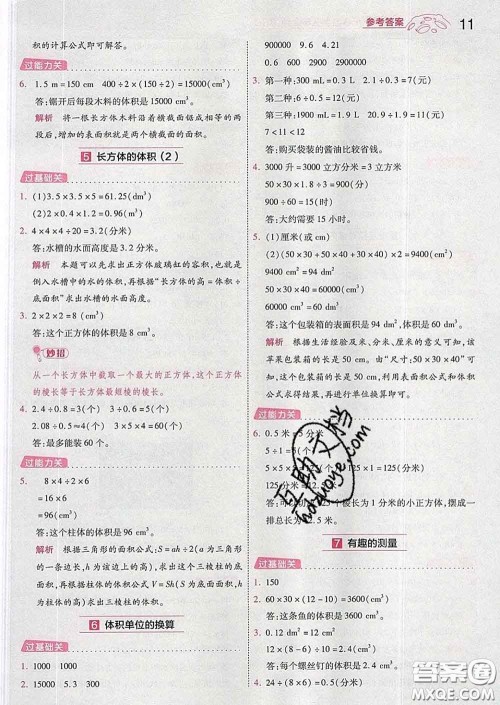 参考答案
11
积的计算公式即可解答。
过能力关
6. 1.5 m=150 cm 400÷2×(150÷2)=15000(cm³)
答:锯开后每段木料的体积是 15000 cm³。
解析 将一根长方体木料沿着横截面锯成相等的两
段后,增加的表面积就是两个横截面的面积。
5 长方体的体积(2)
过基础关
1. (1)3.5×3.5×5=61.25(dm³)
(2)2×0.4×1.2=0.96(m³)
2. 4×4×4÷20=3.2(分米)
答:水槽的水面高度是3.2分米。
解析 本题可以先求出正方体玻璃缸的容积,也就是
倒入水槽中的水的体积,再根据“长方体的高=体积÷
底面积”求出水槽的水面高度。
3. 2×2×2=8(cm³)
答:这个正方体的体积是8 cm³。
妙招
从一个长方体中截取一个最大的正方体,这个正方体
的棱长等于长方体最短棱的棱长。
4. 2.4÷0.8=3(个) 3÷0.6=5(个)
2.08÷0.5≈4(个) 3×5×4=60(个)
答:最多能装60个。
过能力关
5. 8×4÷2×6
=16×6
=96(cm³)
答:这个柱体的体积是 96 cm³。
解析 根据三角形的面积公式:S=ah÷2(a为三角形
的一条边长,h为该边上的高),求出这个三棱柱的底面
积,再根据柱体的体积公式V=Sh(S为底面积,h为
高),求出三棱柱的体积。
6 体积单位的换算
过基础关
1. 1000 1000
2. 15000 5.3 300
900000 9.6 4.21
0.6 2900 2900000
3. 第一种:300 mL=0.3 L 2.1÷0.3=7(元)
第二种:6÷0.5=12(元)
第三种:1900 mL=1.9 L 20.9÷1.9=11(元)
7<11<12
答:购买袋装的酱油比较省钱。
4. 3000升=3000立方分米=3立方米
50×30×1.8÷3=900(分)
900÷60=15(时)
答:大约需要15小时。
5. (1)厘米(或 cm)
(2)(50×30+50×40+30×40)×2=9400(cm²)
9400 cm²=94 dm²
50×30×40=60000(cm³)
60000 cm³=60 dm³
答:这个包装箱的表面积是 94 dm²,体积是 60 dm³。
解析 根据生活经验及米、分米、厘米的意义可知,该
苹果包装箱的长是50 cm。由“尺寸:50×30×40”可
知,这个包装箱的长是50 cm,利用表面积公式和体积
公式求出结果,再进行单位换算即可。
过能力关
6. 0.5米=5分米
5÷1=5(个)
5×5×5=125(个)
125×1=125(分米)=12.5(米)
7 有趣的测量
过基础关
1. 150
2. 60×30×(12-10)=3600(cm³)
答:这条鱼的体积是 3600 cm³。
3. 0.12 dm²=12 cm²
12×(10-8)÷3=8(cm³)
答:每个螺丝钉的体积是8 cm³。
4. 24÷(8-6)=12(cm²)
互助文档
hzduoye.com
答案圈
MXQE.COM